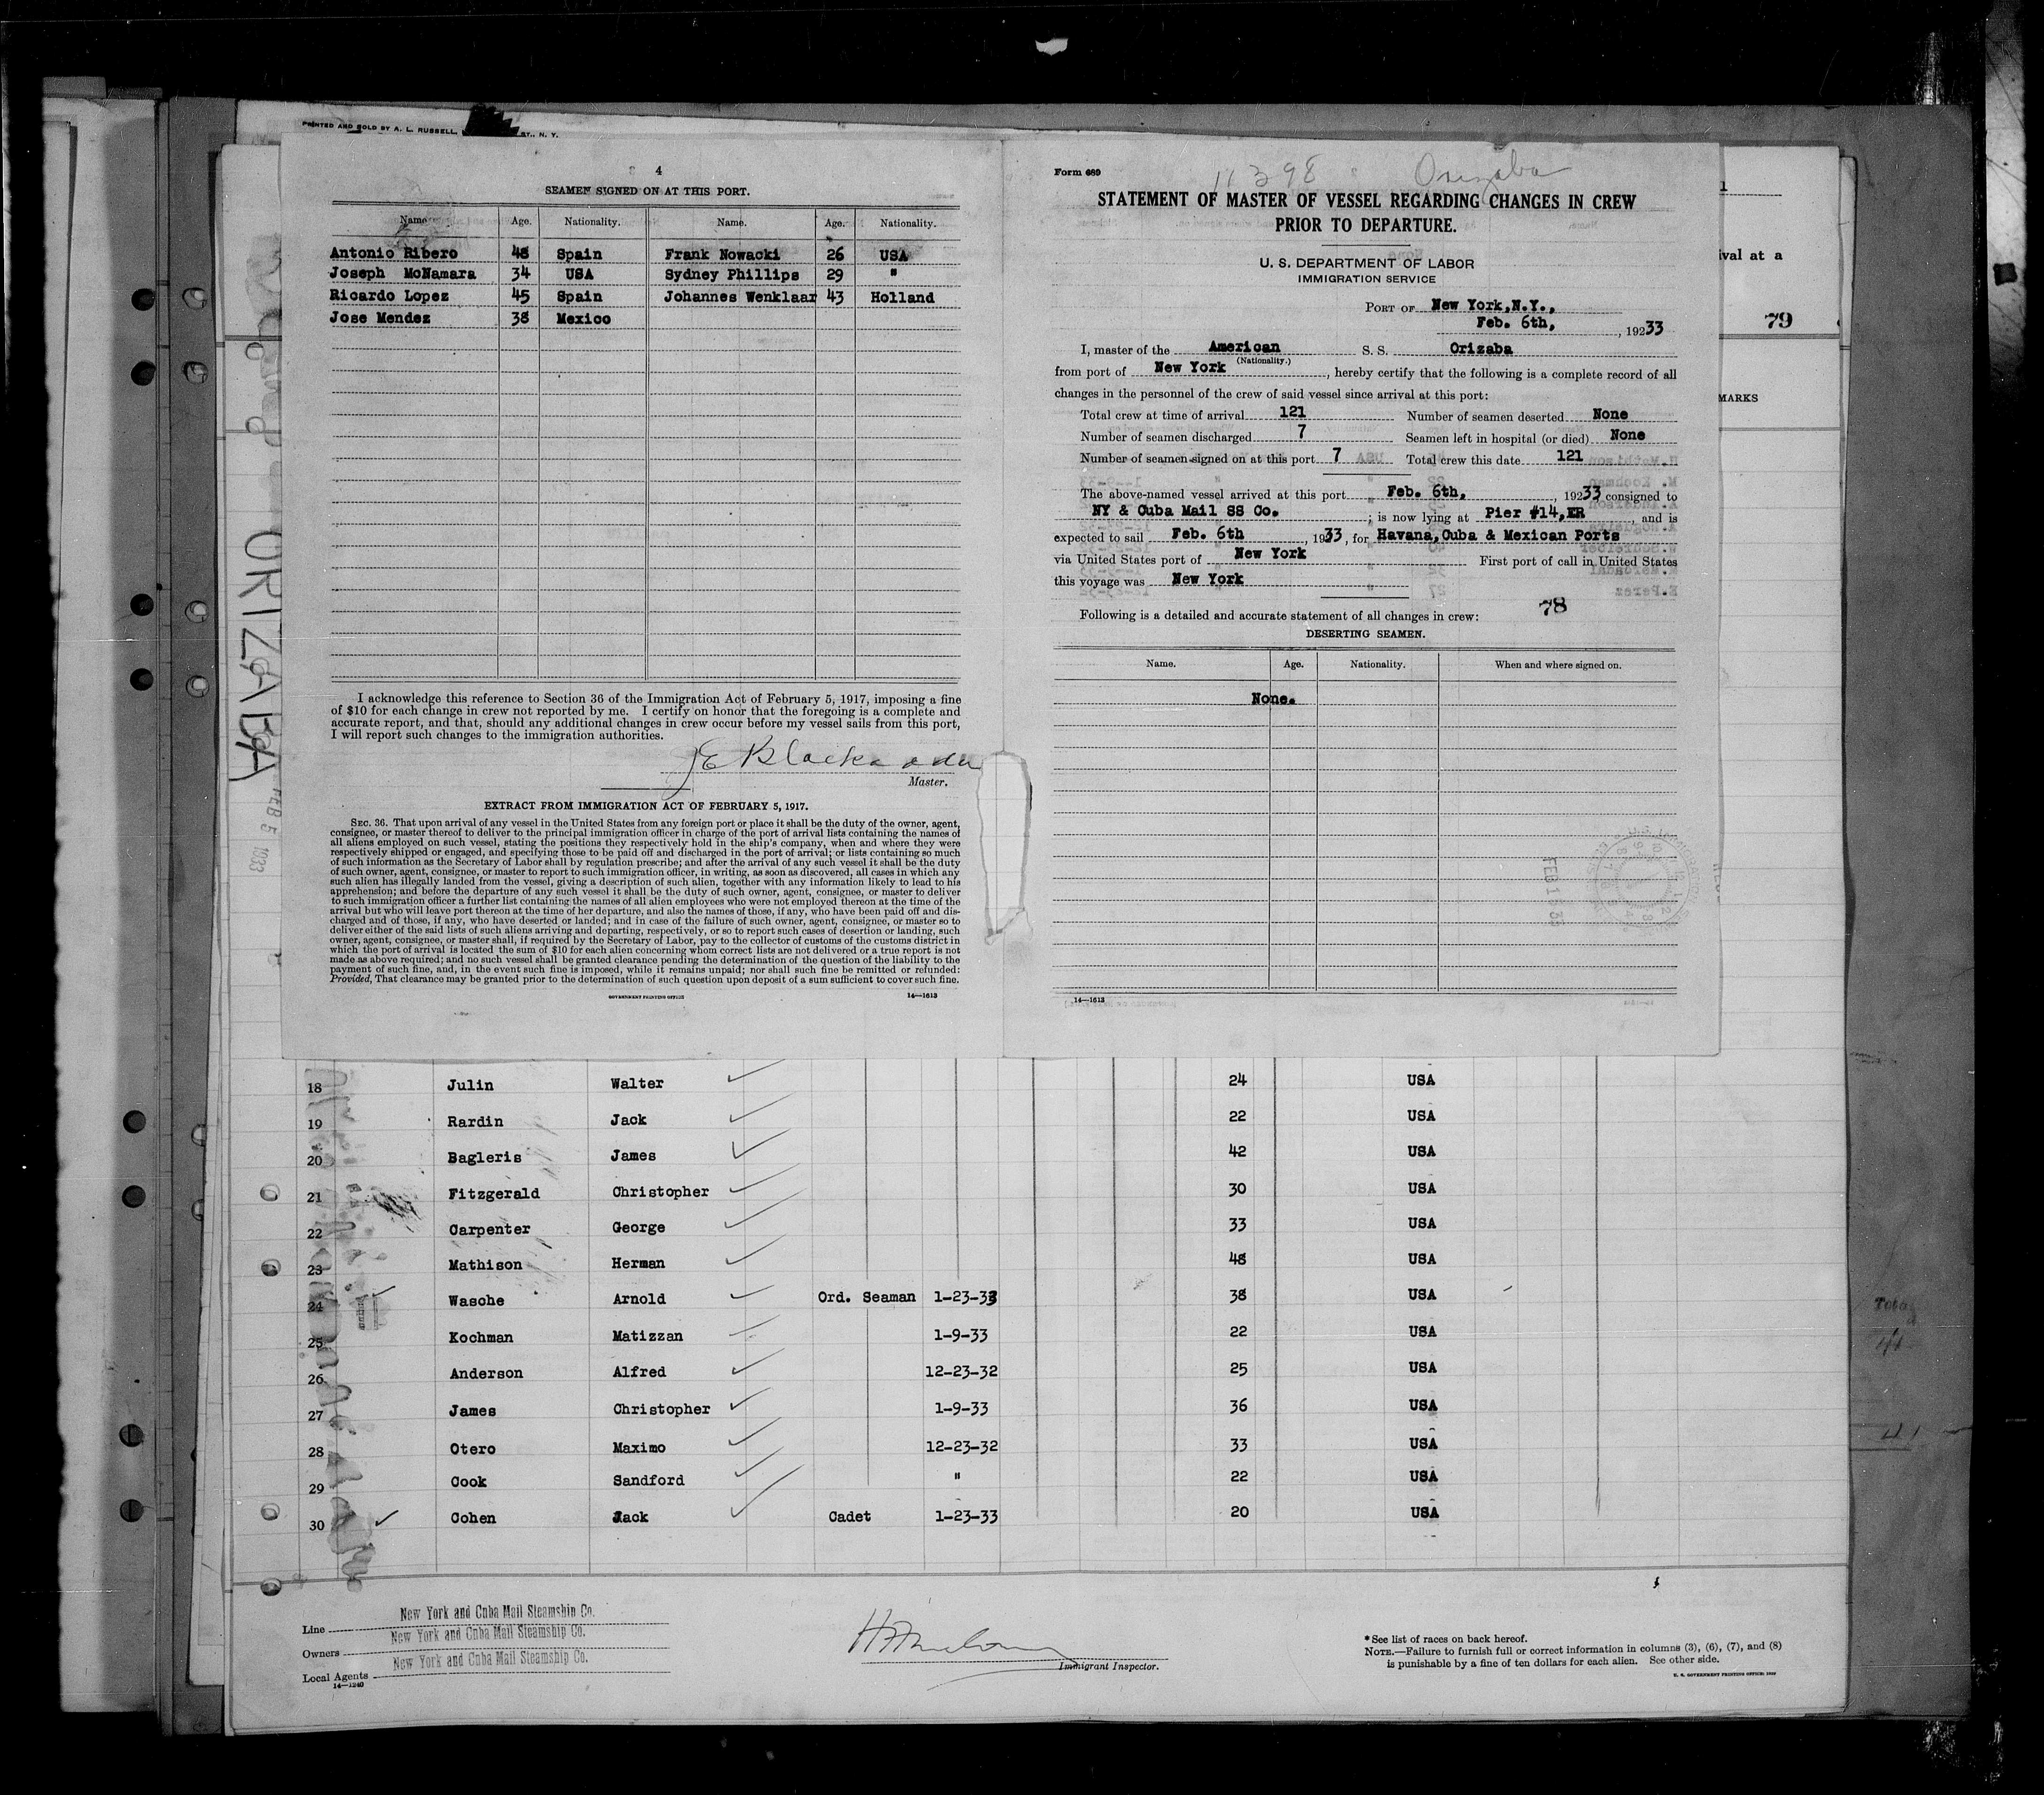 PRINTED AND SOLD BY A. L. RUSSELL, ST., N. Y.
4
SEAMEN SIGNED ON AT THIS PORT.
Name. Age. Nationality. Name. Age. Nationality.
Antonio Ribero 48 Spain Frank Nowacki 26 USA
Joseph McNamara 34 USA Sydney Phillips 29 "
Ricardo Lopez 45 Spain Johannes Wenklaar 43 Holland
Jose Mendez 38 Mexico
I acknowledge this reference to Section 36 of the Immigration Act of February 5, 1917, imposing a fine
of $10 for each change in crew not reported by me. I certify on honor that the foregoing is a complete and
accurate report, and that, should any additional changes in crew occur before my vessel sails from this port,
I will report such changes to the immigration authorities.
Master.
EXTRACT FROM IMMIGRATION ACT OF FEBRUARY 5, 1917.
SEC. 36. That upon arrival of any vessel in the United States from any foreign port or place it shall be the duty of the owner, agent,
consignee, or master thereof to deliver to the principal immigration officer in charge of the port of arrival lists containing the names of
all aliens employed on such vessel, stating the positions they respectively hold in the ship's company, when and where they were
respectively shipped or engaged, and specifying those to be paid off and discharged in the port of arrival; or lists containing so much
of such information as the Secretary of Labor shall by regulation prescribe; and after the arrival of any such vessel it shall be the duty
of such owner, agent, consignee, or master to report to such immigration officer, in writing, as soon as discovered, all cases in which any
such alien has illegally landed from the vessel, giving a description of such alien, together with any information likely to lead to his
apprehension; and before the departure of any such vessel it shall be the duty of such owner, agent, consignee, or master to deliver
to such immigration officer a further list containing the names of all alien employees who were not employed thereon at the time of the
arrival but who will leave port thereon at the time of her departure, and also the names of those, if any, who have been paid off and dis-
charged and of those, if any, who have deserted or landed; and in case of the failure of such owner, agent, consignee, or master so to
deliver either of the said lists of such aliens arriving and departing, respectively, or so to report such cases of desertion or landing, such
owner, agent, consignee, or master shall, if required by the Secretary of Labor, pay to the collector of customs of the customs district in
which the port of arrival is located the sum of $10 for each alien concerning whom correct lists are not delivered or a true report is not
made as above required; and no such vessel shall be granted clearance pending the determination of the question of the liability to the
payment of such fine, and, in the event such fine is imposed, while it remains unpaid; nor shall such fine be remitted or refunded:
Provided, That clearance may be granted prior to the determination of such question upon deposit of a sum sufficient to cover such fine.
GOVERNMENT PRINTING OFFICE 14—1613
Form 689 11398 Orizaba
STATEMENT OF MASTER OF VESSEL REGARDING CHANGES IN CREW
PRIOR TO DEPARTURE.
U. S. DEPARTMENT OF LABOR
IMMIGRATION SERVICE
PORT OF New York, N.Y.,
Feb. 6th, , 19233
I, master of the American S. S. Orizaba
(Nationality.)
from port of New York , hereby certify that the following is a complete record of all
changes in the personnel of the crew of said vessel since arrival at this port:
Total crew at time of arrival 121 Number of seamen deserted None
Number of seamen discharged 7 Seamen left in hospital (or died) None
Number of seamen signed on at this port 7 Total crew this date 121
The above-named vessel arrived at this port Feb. 6th, , 19233, consigned to
NY & Cuba Mail SS Co. ; is now lying at Pier #14, ER , and is
expected to sail Feb. 6th , 1933, for Havana, Cuba & Mexican Ports
via United States port of New York First port of call in United States
this voyage was New York
78
Following is a detailed and accurate statement of all changes in crew:
DESERTING SEAMEN.
Name. Age. Nationality. When and where signed on.
None.
14—1613
1
ival at a
79
MARKS
ORIZABA
FEB 5 1933
18 Julin Walter 24 USA
19 Rardin Jack 22 USA
20 Bagleris James 42 USA
21 Fitzgerald Christopher 30 USA
22 Carpenter George 33 USA
23 Mathison Herman 48 USA
24 Wasche Arnold Ord. Seaman 1-23-33 38 USA
25 Kochman Matizzan 1-9-33 22 USA
26 Anderson Alfred 12-23-32 25 USA
27 James Christopher 1-9-33 36 USA
28 Otero Maximo 12-23-32 33 USA
29 Cook Sandford " 22 USA
30 Cohen Jack Cadet 1-23-33 20 USA
Line New York and Cuba Mail Steamship Co.
Owners New York and Cuba Mail Steamship Co.
Local Agents New York and Cuba Mail Steamship Co.
14—1240
Immigrant Inspector.
*See list of races on back hereof.
NOTE.—Failure to furnish full or correct information in columns (3), (6), (7), and (8)
is punishable by a fine of ten dollars for each alien. See other side.
U. S. GOVERNMENT PRINTING OFFICE